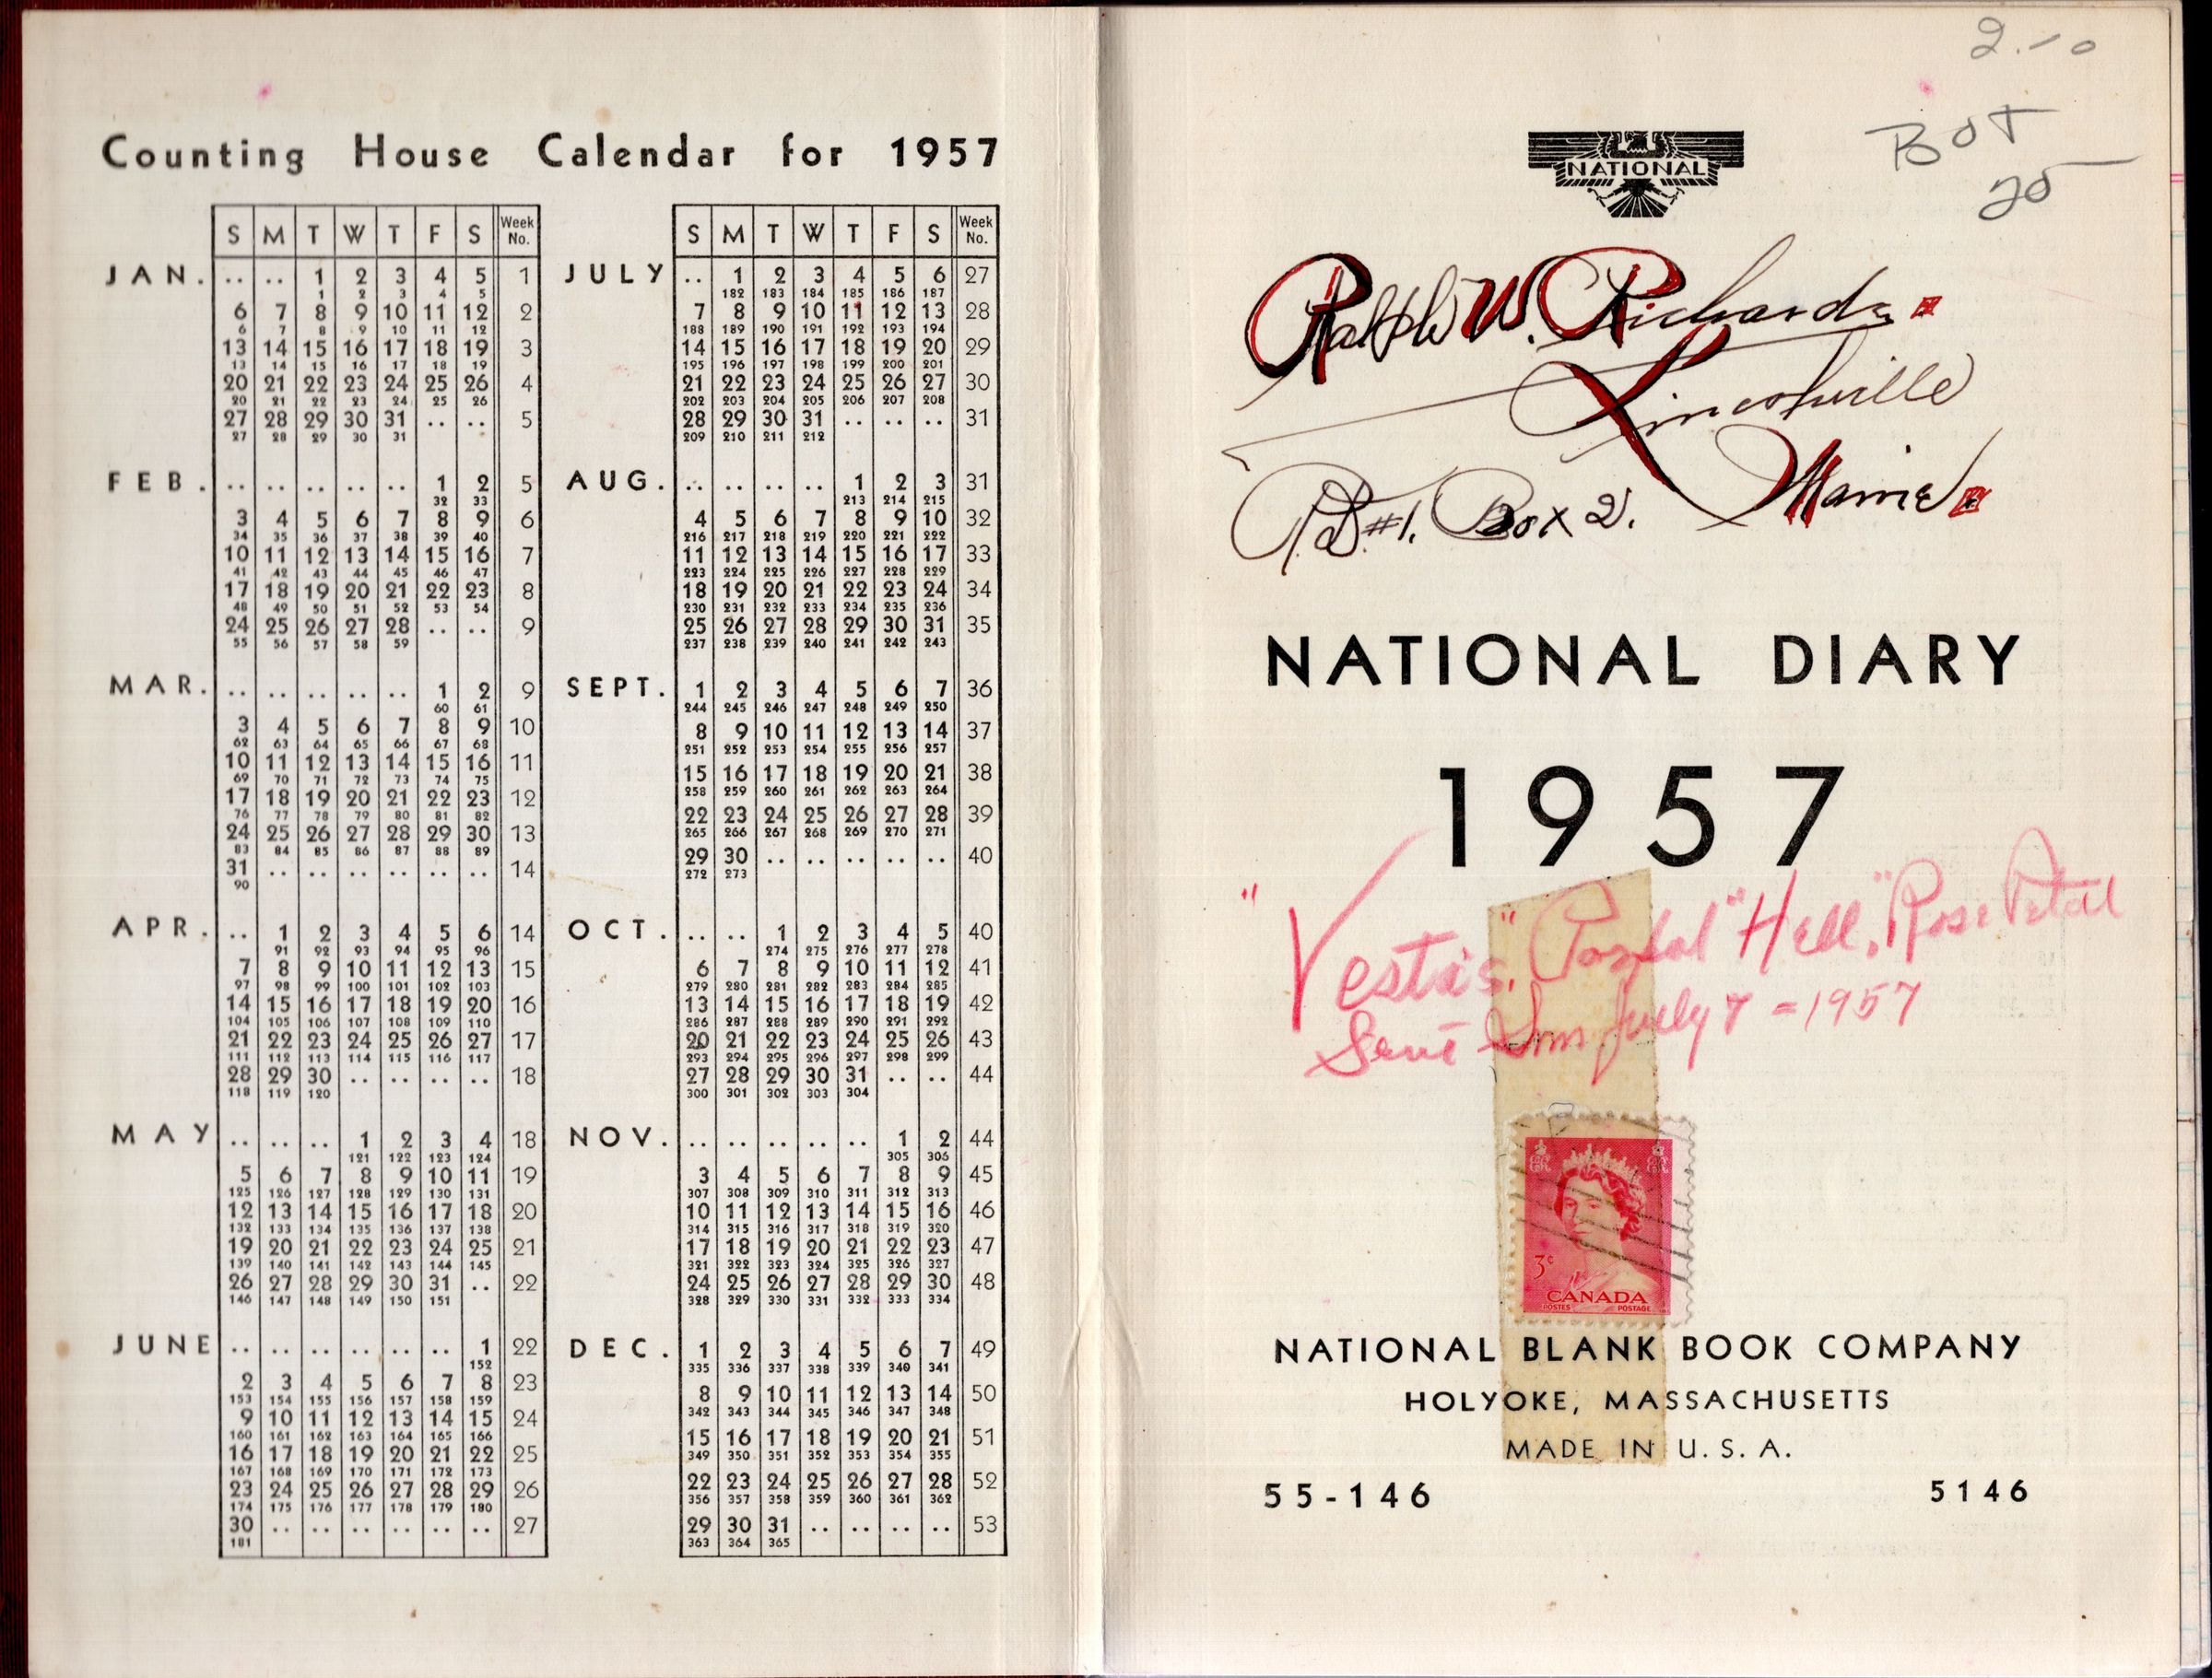 Counting House Calendar for 1957
S M T W T F S Week No.
JAN. .. .. 1 2 3 4 5 1
1 2 3 4 5
6 7 8 9 10 11 12 2
6 7 8 9 10 11 12
13 14 15 16 17 18 19 3
13 14 15 16 17 18 19
20 21 22 23 24 25 26 4
20 21 22 23 24 25 26
27 28 29 30 31 .. .. 5
27 28 29 30 31
FEB. .. .. .. .. .. 1 2 5
32 33
3 4 5 6 7 8 9 6
34 35 36 37 38 39 40
10 11 12 13 14 15 16 7
41 42 43 44 45 46 47
17 18 19 20 21 22 23 8
48 49 50 51 52 53 54
24 25 26 27 28 .. .. 9
55 56 57 58 59
MAR. .. .. .. .. .. 1 2 9
60 61
3 4 5 6 7 8 9 10
62 63 64 65 66 67 68
10 11 12 13 14 15 16 11
69 70 71 72 73 74 75
17 18 19 20 21 22 23 12
76 77 78 79 80 81 82
24 25 26 27 28 29 30 13
83 84 85 86 87 88 89
31 .. .. .. .. .. .. 14
90
APR. .. 1 2 3 4 5 6 14
91 92 93 94 95 96
7 8 9 10 11 12 13 15
97 98 99 100 101 102 103
14 15 16 17 18 19 20 16
104 105 106 107 108 109 110
21 22 23 24 25 26 27 17
111 112 113 114 115 116 117
28 29 30 .. .. .. .. 18
118 119 120
MAY .. .. .. 1 2 3 4 18
121 122 123 124
5 6 7 8 9 10 11 19
125 126 127 128 129 130 131
12 13 14 15 16 17 18 20
132 133 134 135 136 137 138
19 20 21 22 23 24 25 21
139 140 141 142 143 144 145
26 27 28 29 30 31 .. 22
146 147 148 149 150 151
JUNE .. .. .. .. .. .. 1 22
152
2 3 4 5 6 7 8 23
153 154 155 156 157 158 159
9 10 11 12 13 14 15 24
160 161 162 163 164 165 166
16 17 18 19 20 21 22 25
167 168 169 170 171 172 173
23 24 25 26 27 28 29 26
174 175 176 177 178 179 180
30 .. .. .. .. .. .. 27
181
S M T W T F S Week No.
JULY .. 1 2 3 4 5 6 27
182 183 184 185 186 187
7 8 9 10 11 12 13 28
188 189 190 191 192 193 194
14 15 16 17 18 19 20 29
195 196 197 198 199 200 201
21 22 23 24 25 26 27 30
202 203 204 205 206 207 208
28 29 30 31 .. .. .. 31
209 210 211 212
AUG. .. .. .. .. 1 2 3 31
213 214 215
4 5 6 7 8 9 10 32
216 217 218 219 220 221 222
11 12 13 14 15 16 17 33
223 224 225 226 227 228 229
18 19 20 21 22 23 24 34
230 231 232 233 234 235 236
25 26 27 28 29 30 31 35
237 238 239 240 241 242 243
SEPT. 1 2 3 4 5 6 7 36
244 245 246 247 248 249 250
8 9 10 11 12 13 14 37
251 252 253 254 255 256 257
15 16 17 18 19 20 21 38
258 259 260 261 262 263 264
22 23 24 25 26 27 28 39
265 266 267 268 269 270 271
29 30 .. .. .. .. .. 40
272 273
OCT. .. .. 1 2 3 4 5 40
274 275 276 277 278
6 7 8 9 10 11 12 41
279 280 281 282 283 284 285
13 14 15 16 17 18 19 42
286 287 288 289 290 291 292
20 21 22 23 24 25 26 43
293 294 295 296 297 298 299
27 28 29 30 31 .. .. 44
300 301 302 303 304
NOV. .. .. .. .. .. 1 2 44
305 306
3 4 5 6 7 8 9 45
307 308 309 310 311 312 313
10 11 12 13 14 15 16 46
314 315 316 317 318 319 320
17 18 19 20 21 22 23 47
321 322 323 324 325 326 327
24 25 26 27 28 29 30 48
328 329 330 331 332 333 334
DEC. 1 2 3 4 5 6 7 49
335 336 337 338 339 340 341
8 9 10 11 12 13 14 50
342 343 344 345 346 347 348
15 16 17 18 19 20 21 51
349 350 351 352 353 354 355
22 23 24 25 26 27 28 52
356 357 358 359 360 361 362
29 30 31 .. .. .. .. 53
363 364 365
2.10
BOT
25
NATIONAL
Ralph W. Richards
Lincolnville
Maine
RD #1. Box 2.
NATIONAL DIARY
1957
"Vesta's" Postal "Hell," Rose Petal
Sent Sun July 7 = 1957
3¢
CANADA
POSTES POSTAGE
NATIONAL BLANK BOOK COMPANY
HOLYOKE, MASSACHUSETTS
MADE IN U. S. A.
55-146 5146